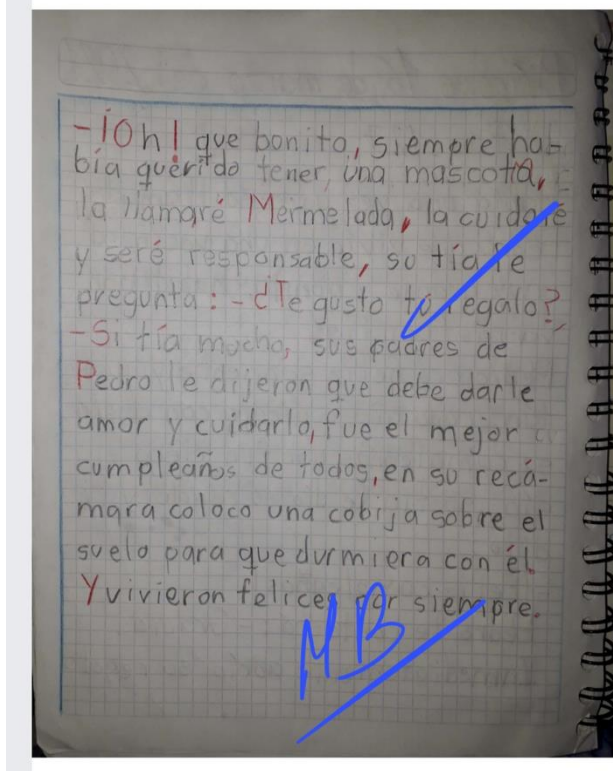 -¡Oh! que bonito, siempre ha-
bía querido tener una mascota,
la llamaré Mermelada, la cuidaré
y seré responsable, su tía le
pregunta: -¿Te gusto tú regalo?
-Si tía mucho, sus padres de
Pedro le dijeron que debe darle
amor y cuidarlo, fue el mejor
cumpleaños de todos, en su recá-
mara coloco una cobija sobre el
suelo para que durmiera con él.
Y vivieron felices por siempre.
MB